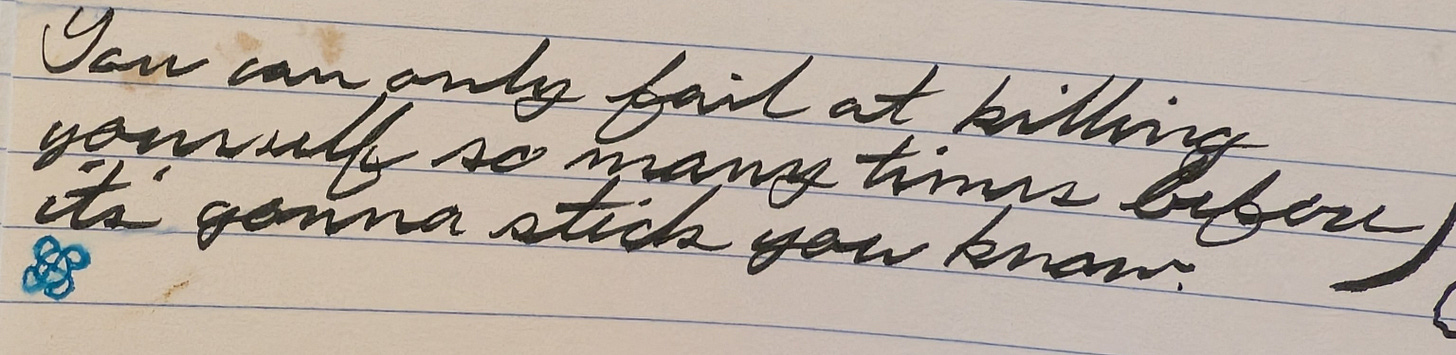 You can only fail at killing
yourself so many times before
it's gonna stick you know.